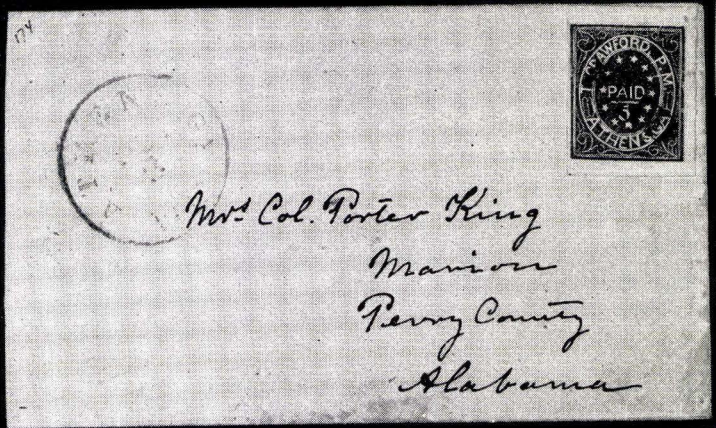 174
T. CRAWFORD, P.M.
PAID
5
ATHENS, GA.
Mrs Col. Porter King
Marion
Perry County
Alabama